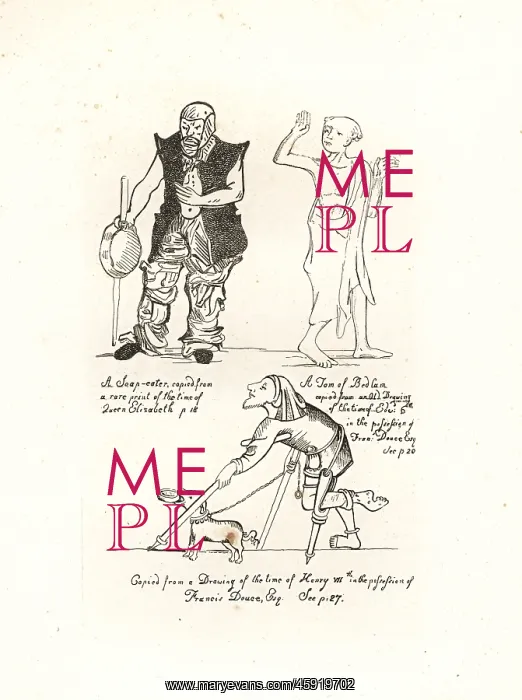 ME
PL
A Soap-eater, copied from
a rare print of the time of
Queen Elizabeth p 18
A Tom of Bedlam
copied from an Old Drawing
of the time of Edw. 6th
in the possession of
Fran: Douce Esq
See p 20
ME
PL
Copied from a Drawing of the time of Henry VII th in the possession of
Francis Douce, Esq. See p. 27.
www.maryevans.com/45919702